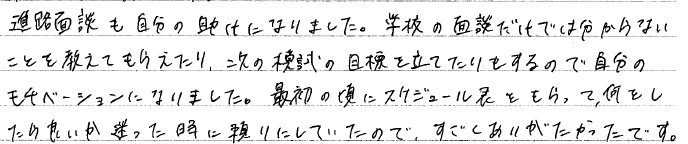 進路面談も自分の助けになりました。学校の面談だけでは分からない
ことを教えてもらえたり、次の模試の目標を立てたりもするので自分の
モチベーションになりました。最初の頃にスケジュール表をもらって、何をし
たら良いか迷った時に頼りにしていたので、すごくありがたかったです。